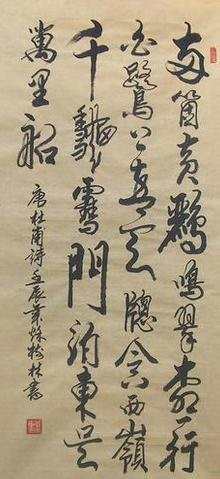 兩箇黄鸝鳴翠柳一行
白鷺上青天牕含西嶺
千龝雪門泊東吳
萬里船
唐杜甫詩壬辰